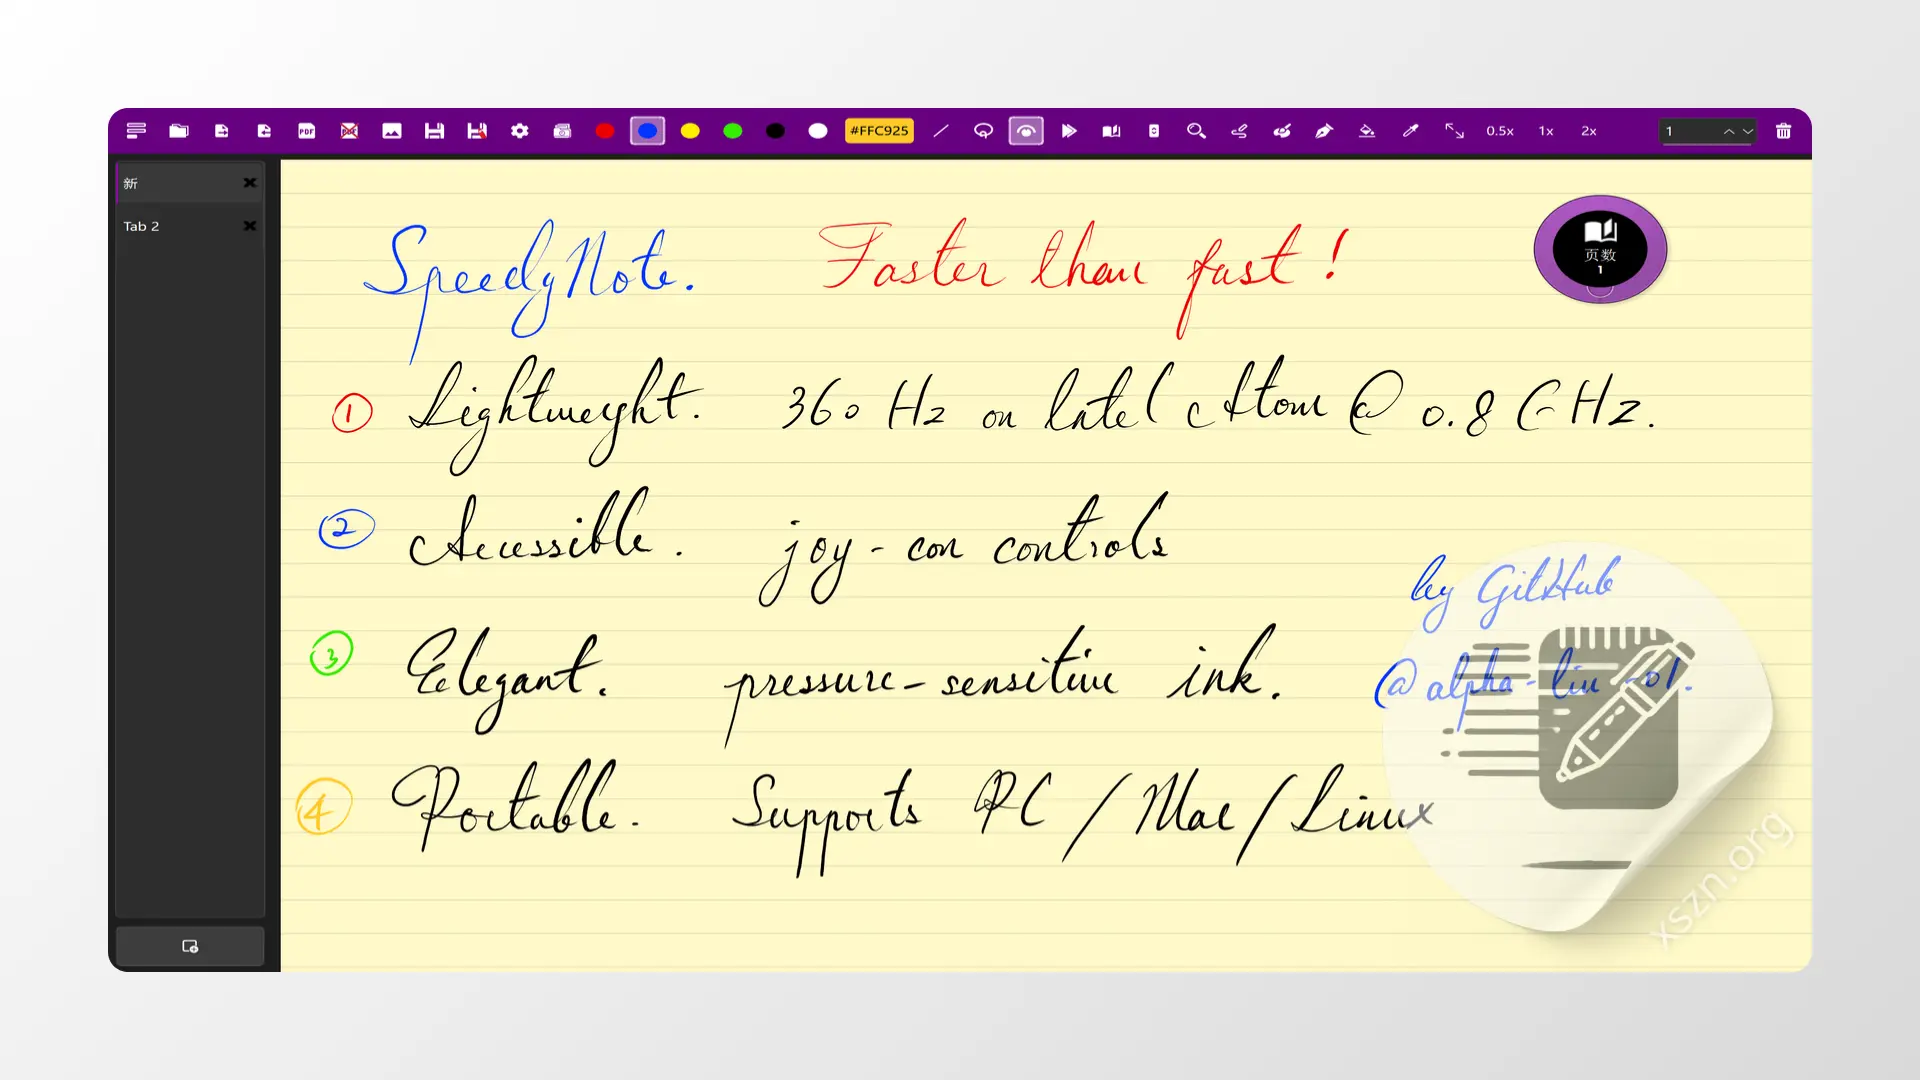 #FFC925 0.5x 1x 2x 1
新
Tab 2
页数
1
SpeedyNote. Faster than fast!
1 Lightweight. 360 Hz on Intel Atom @ 0.8 GHz.
2 Accessible. joy-con controls
by GitHub
3 Elegant. pressure-sensitive ink.
@alpha-liu-01.
4 Portable. Supports PC / Mac / Linux
xszn.org